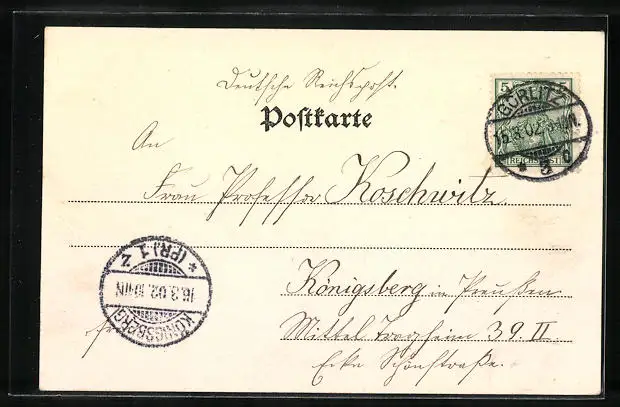 Deutsche Reichspost.
Postkarte
An
Frau Professor Koschwitz
Königsberg in Preußen
Mittel Tragheim 39. II
Ecke Schönstraße.
fr
5
REICHSPOST
GÖRLITZ
3.02.
* 5 c
KÖNIGSBERG
16.3.02. 10-11N
* (PR.) 1 Z